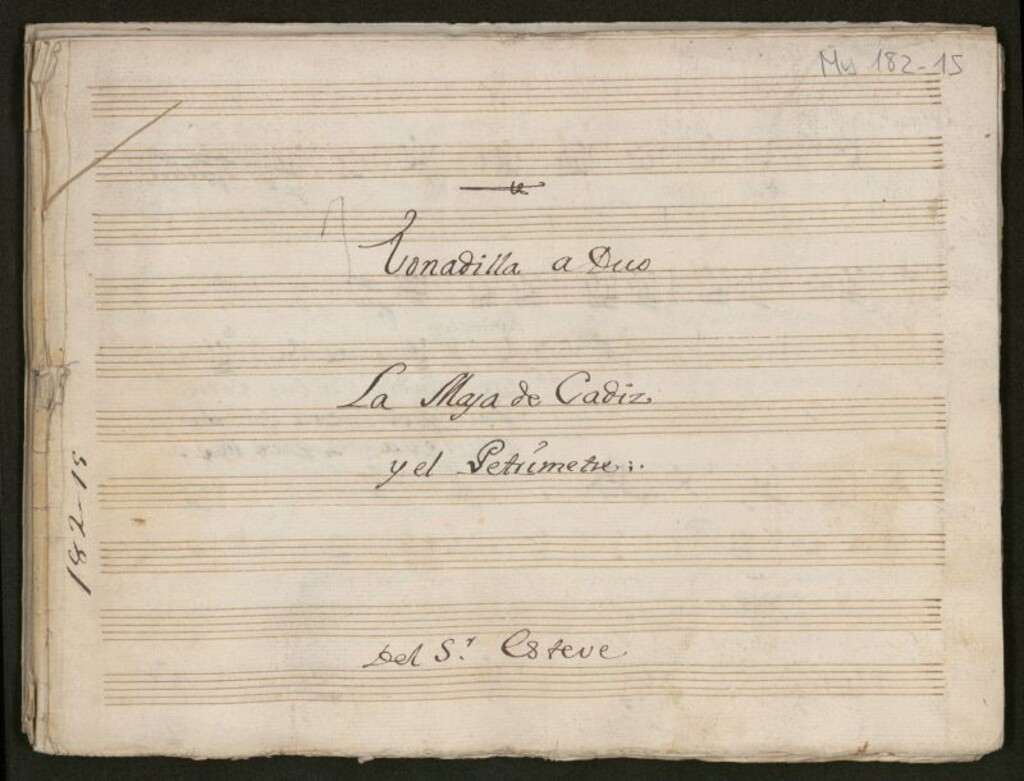 Mus 182-15
Tonadilla a Duo
La Maja de Cadiz
y el Petrimetre
Del S.r Esteve
182-15